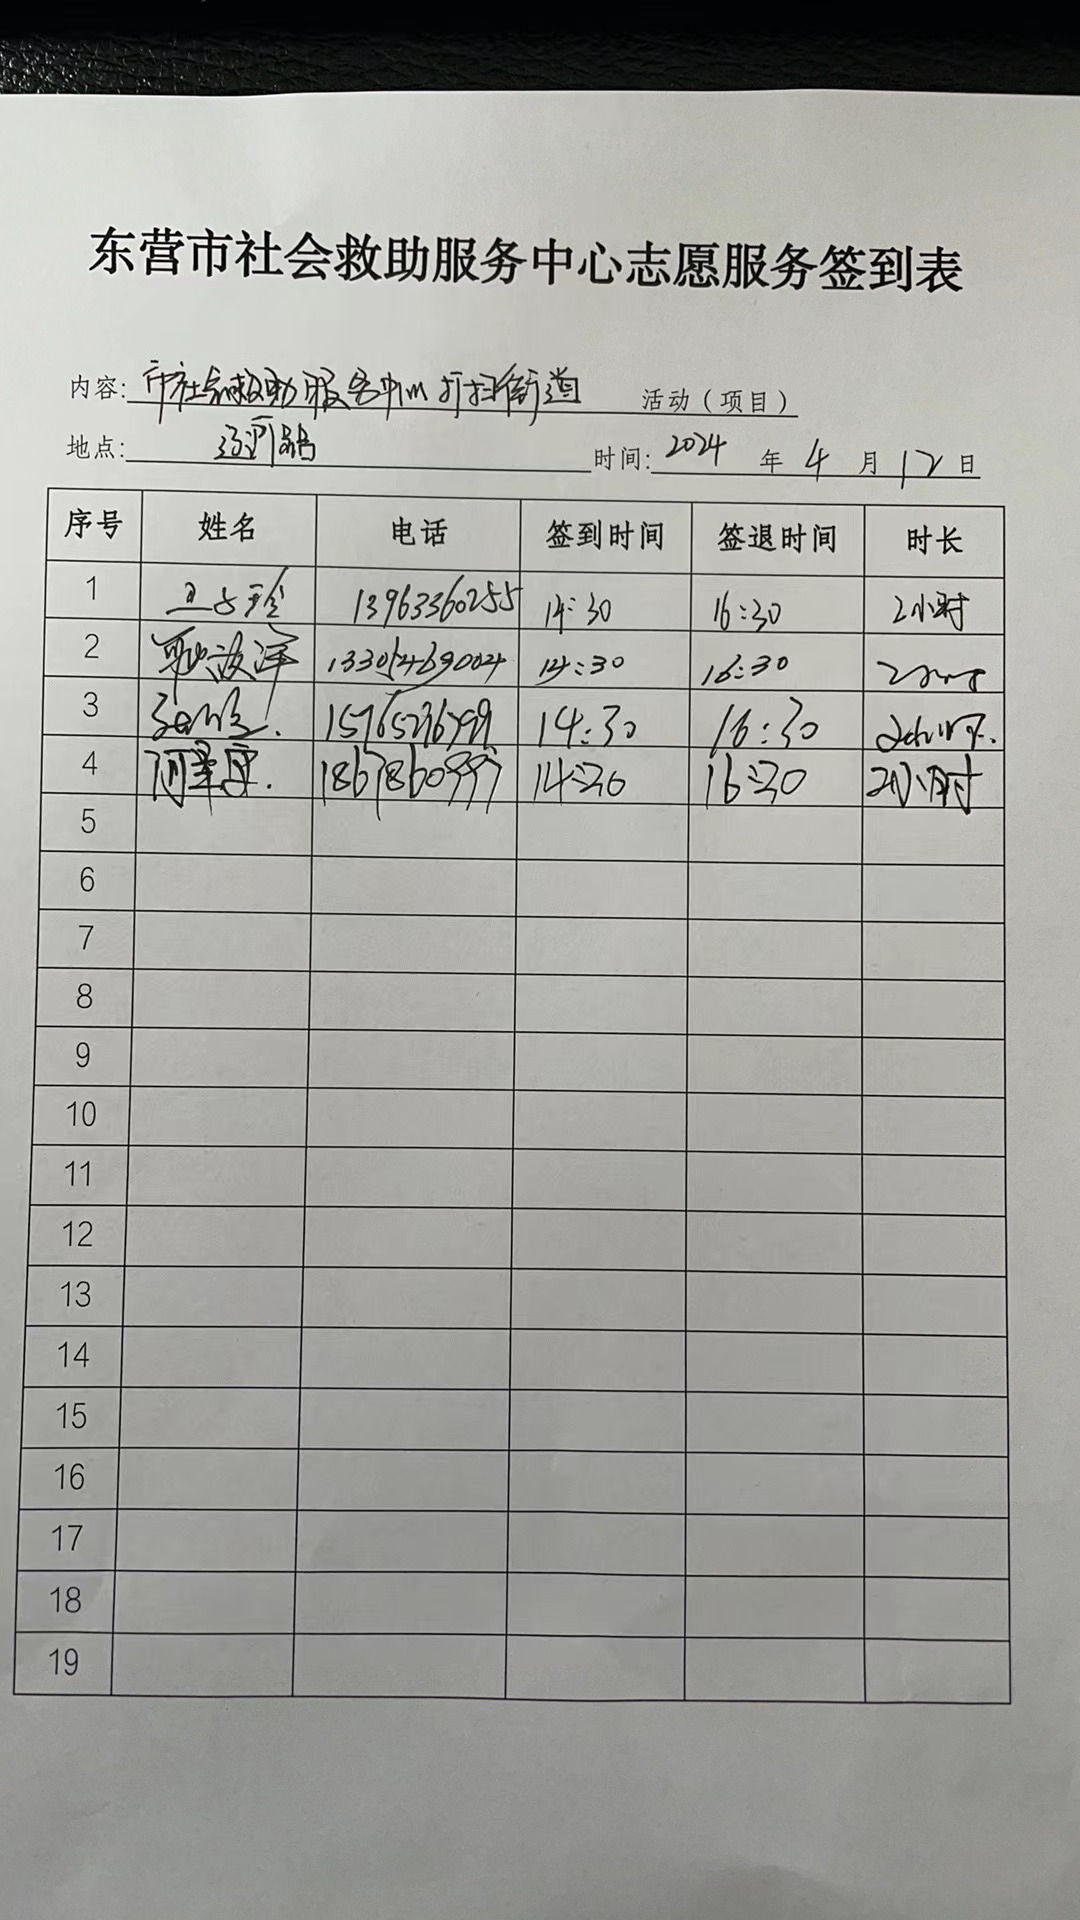 东营市社会救助服务中心志愿服务签到表
内容: 市社会救助服务中心打扫街道 活动（项目）
地点: 时间: 2024 年 4 月 12 日
序号 姓名 电话 签到时间 签退时间 时长
1 13963360255 14:30 16:30 2小时
2 14:30 16:30 2小时
3 14:30 16:30 2小时
4 14:30 16:30 2小时
5
6
7
8
9
10
11
12
13
14
15
16
17
18
19